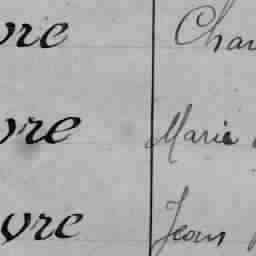 vre Char
vre Marie
vre Jean